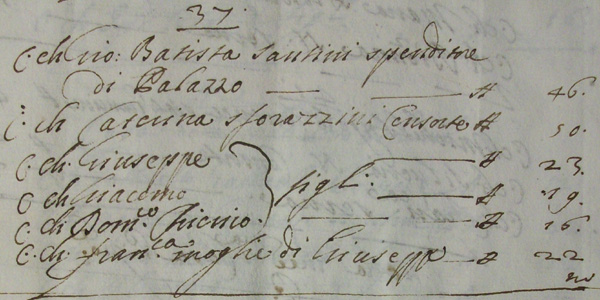 37.
C. ch Gio: Batista Santini spenditore
di Palazzo — — A 46.
C. ch Caterina Sforazzini Consorte A 50.
C. ch. Giuseppe — A 23.
C ch Giacomo figli: — A 19.
C. ch Dom.co — A 16.
C. ch. Fran.ca moglie di Giuseppe — A 22